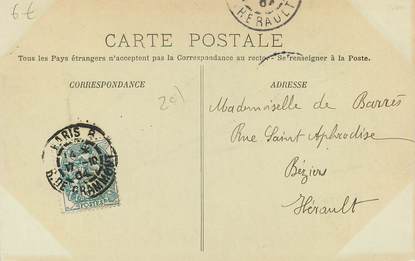 6€
HERAULT
CARTE POSTALE
Tous les Pays étrangers n'acceptent pas la Correspondance au recto. - Se renseigner à la Poste.
CORRESPONDANCE
ADRESSE
201
Mademoiselle de Barrès
Rue Saint Aphrodise
Béziers
Hérault
PARIS
04
POSTES